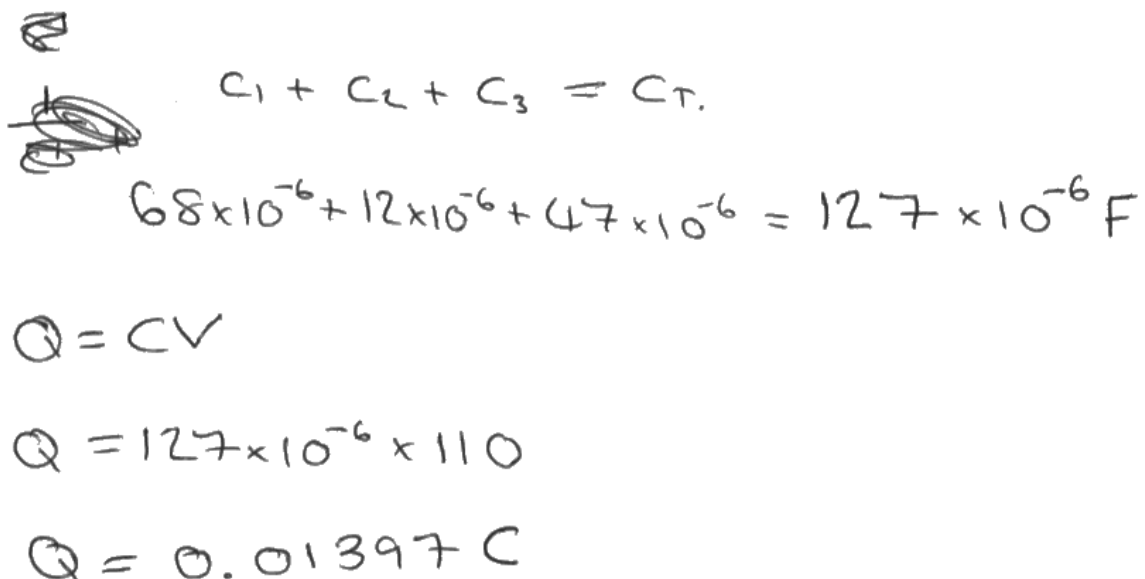 C₁ + C₂ + C₃ = C_T.
68×10⁻⁶ + 12×10⁻⁶ + 47×10⁻⁶ = 127 × 10⁻⁶ F
Q = CV
Q = 127×10⁻⁶ × 110
Q = 0.01397 C